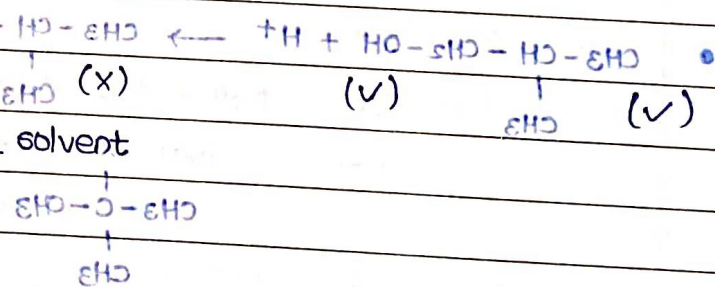 • CH3-CH-CH2-OH + H+ → CH3-CH-
CH3 (x) (✓) CH3 (✓)
solvent
CH3-C-CH3
CH3